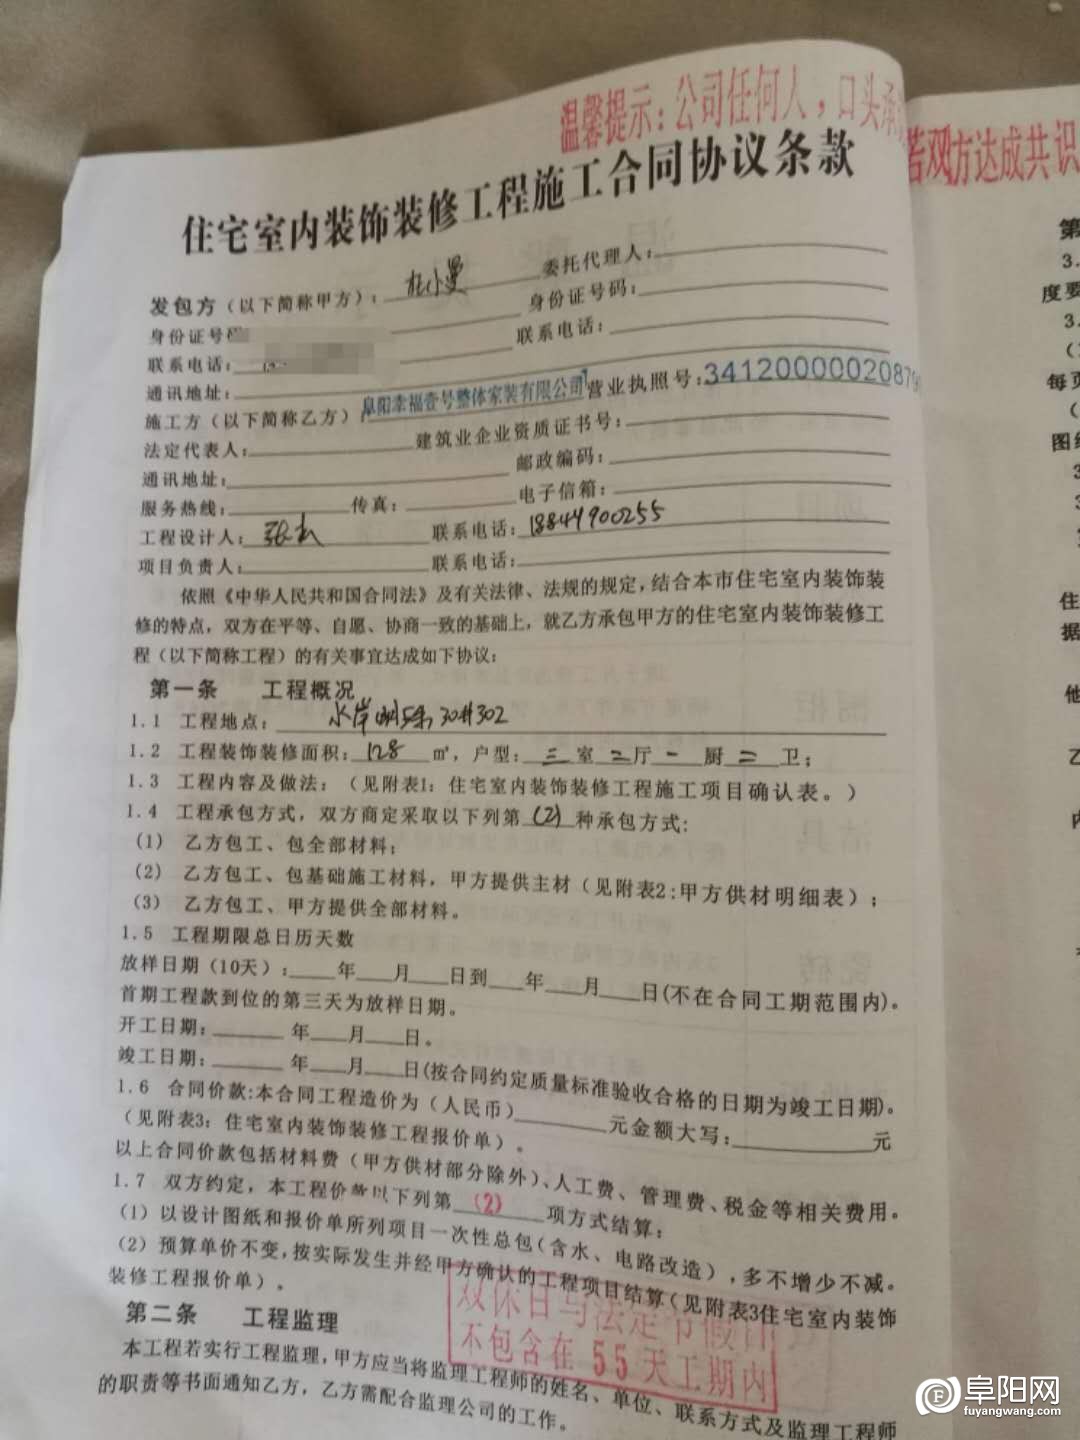 温馨提示：公司任何人，口头承
若双方达成共识
住宅室内装饰装修工程施工合同协议条款
发包方（以下简称甲方）：杜小曼 委托代理人：
身份证号 身份证号码：
联系电话： 联系电话：
通讯地址：
施工方（以下简称乙方） 阜阳幸福壹号整体家装有限公司 营业执照号：3412000002087
法定代表人： 建筑业企业资质证书号：
通讯地址： 邮政编码：
服务热线： 传真： 电子信箱：
工程设计人： 联系电话：18844900255
项目负责人： 联系电话：
依照《中华人民共和国合同法》及有关法律、法规的规定，结合本市住宅室内装饰装
修的特点，双方在平等、自愿、协商一致的基础上，就乙方承包甲方的住宅室内装饰装修工
程（以下简称工程）的有关事宜达成如下协议：
第一条 工程概况
1.1 工程地点：水岸 30#302
1.2 工程装饰装修面积：128 ㎡，户型：三室二厅一厨二卫；
1.3 工程内容及做法：（见附表1：住宅室内装饰装修工程施工项目确认表。）
1.4 工程承包方式，双方商定采取以下列第(2)种承包方式：
(1) 乙方包工、包全部材料；
(2) 乙方包工、包基础施工材料，甲方提供主材（见附表2：甲方供材明细表）；
(3) 乙方包工、甲方提供全部材料。
1.5 工程期限总日历天数
放样日期（10天）：年 月 日到 年 月 日(不在合同工期范围内)。
首期工程款到位的第三天为放样日期。
开工日期： 年 月 日。
竣工日期： 年 月 日(按合同约定质量标准验收合格的日期为竣工日期)。
1.6 合同价款：本合同工程造价为（人民币） 元金额大写： 元
（见附表3：住宅室内装饰装修工程报价单）。
以上合同价款包括材料费（甲方供材部分除外）、人工费、管理费、税金等相关费用。
1.7 双方约定，本工程价款以下列第(2)项方式结算：
(1) 以设计图纸和报价单所列项目一次性总包（含水、电路改造），多不增少不减。
(2) 预算单价不变，按实际发生并经甲方确认的工程项目结算（见附表3住宅室内装饰
装修工程报价单）。
双休日与法定节假日
不包含在55天工期内
第二条 工程监理
本工程若实行工程监理，甲方应当将监理工程师的姓名、单位、联系方式及监理工程师
的职责等书面通知乙方，乙方需配合监理公司的工作。
第
3.
度要
3.
每页
图纸
3
住
据
他
乙
内
阜阳网
fuyangwang.com